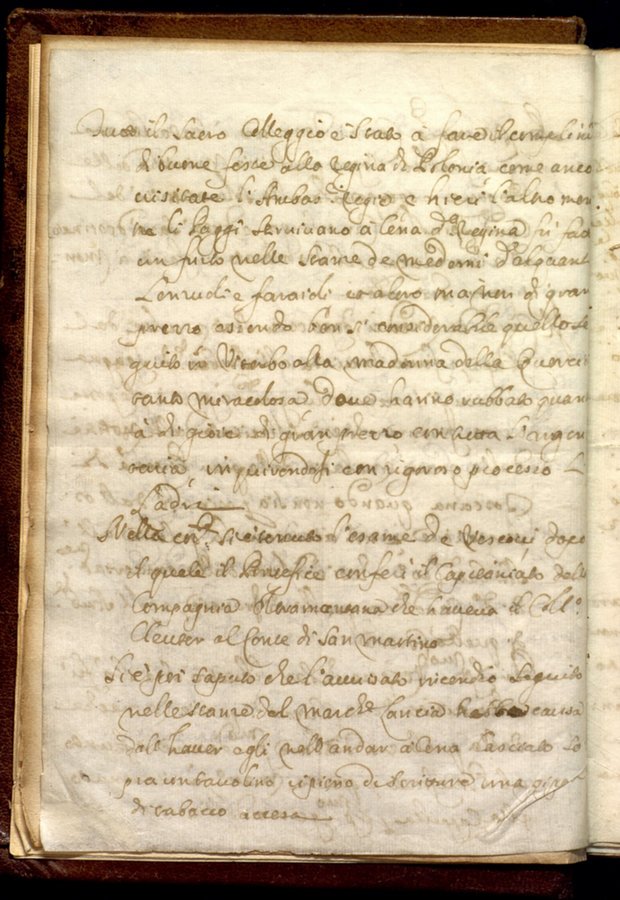 Tutto il Sacro Colleggio è stato à fare il complim
di buone feste alla Regina di Polonia come anco
visitate l'Ambas: Regie e hieri l'altro men
tre li Paggi servivano à Cena d: Regina fù fat
un furto nelle stanze de medemi d'alquant
Lenzuoli e faraioli et altro di gran
prezzo essendo ben sì considerabile quello se
guito in Viterbo alla Madonna della Querci
tanto miracolosa dove hanno rubbato quan
à di gioie di gran prezzo con tutta l'argen
taria inquirendosi con rigoroso processo L
Ladri
Nella si è tenuto l'esame de Vescovi dopo
il quale il Pontefice conferì il Capitaniato della
Compagnia che haveva il Coll:
al Conte di San Martino
Si è poi saputo che l'accusato incendio seguito
nelle stanze del March: Lancia hebbe causa
dall' haver egli nell' andar à Cena lasciato so
pra un tavolino ripieno di scritture una
di tabacco accesa